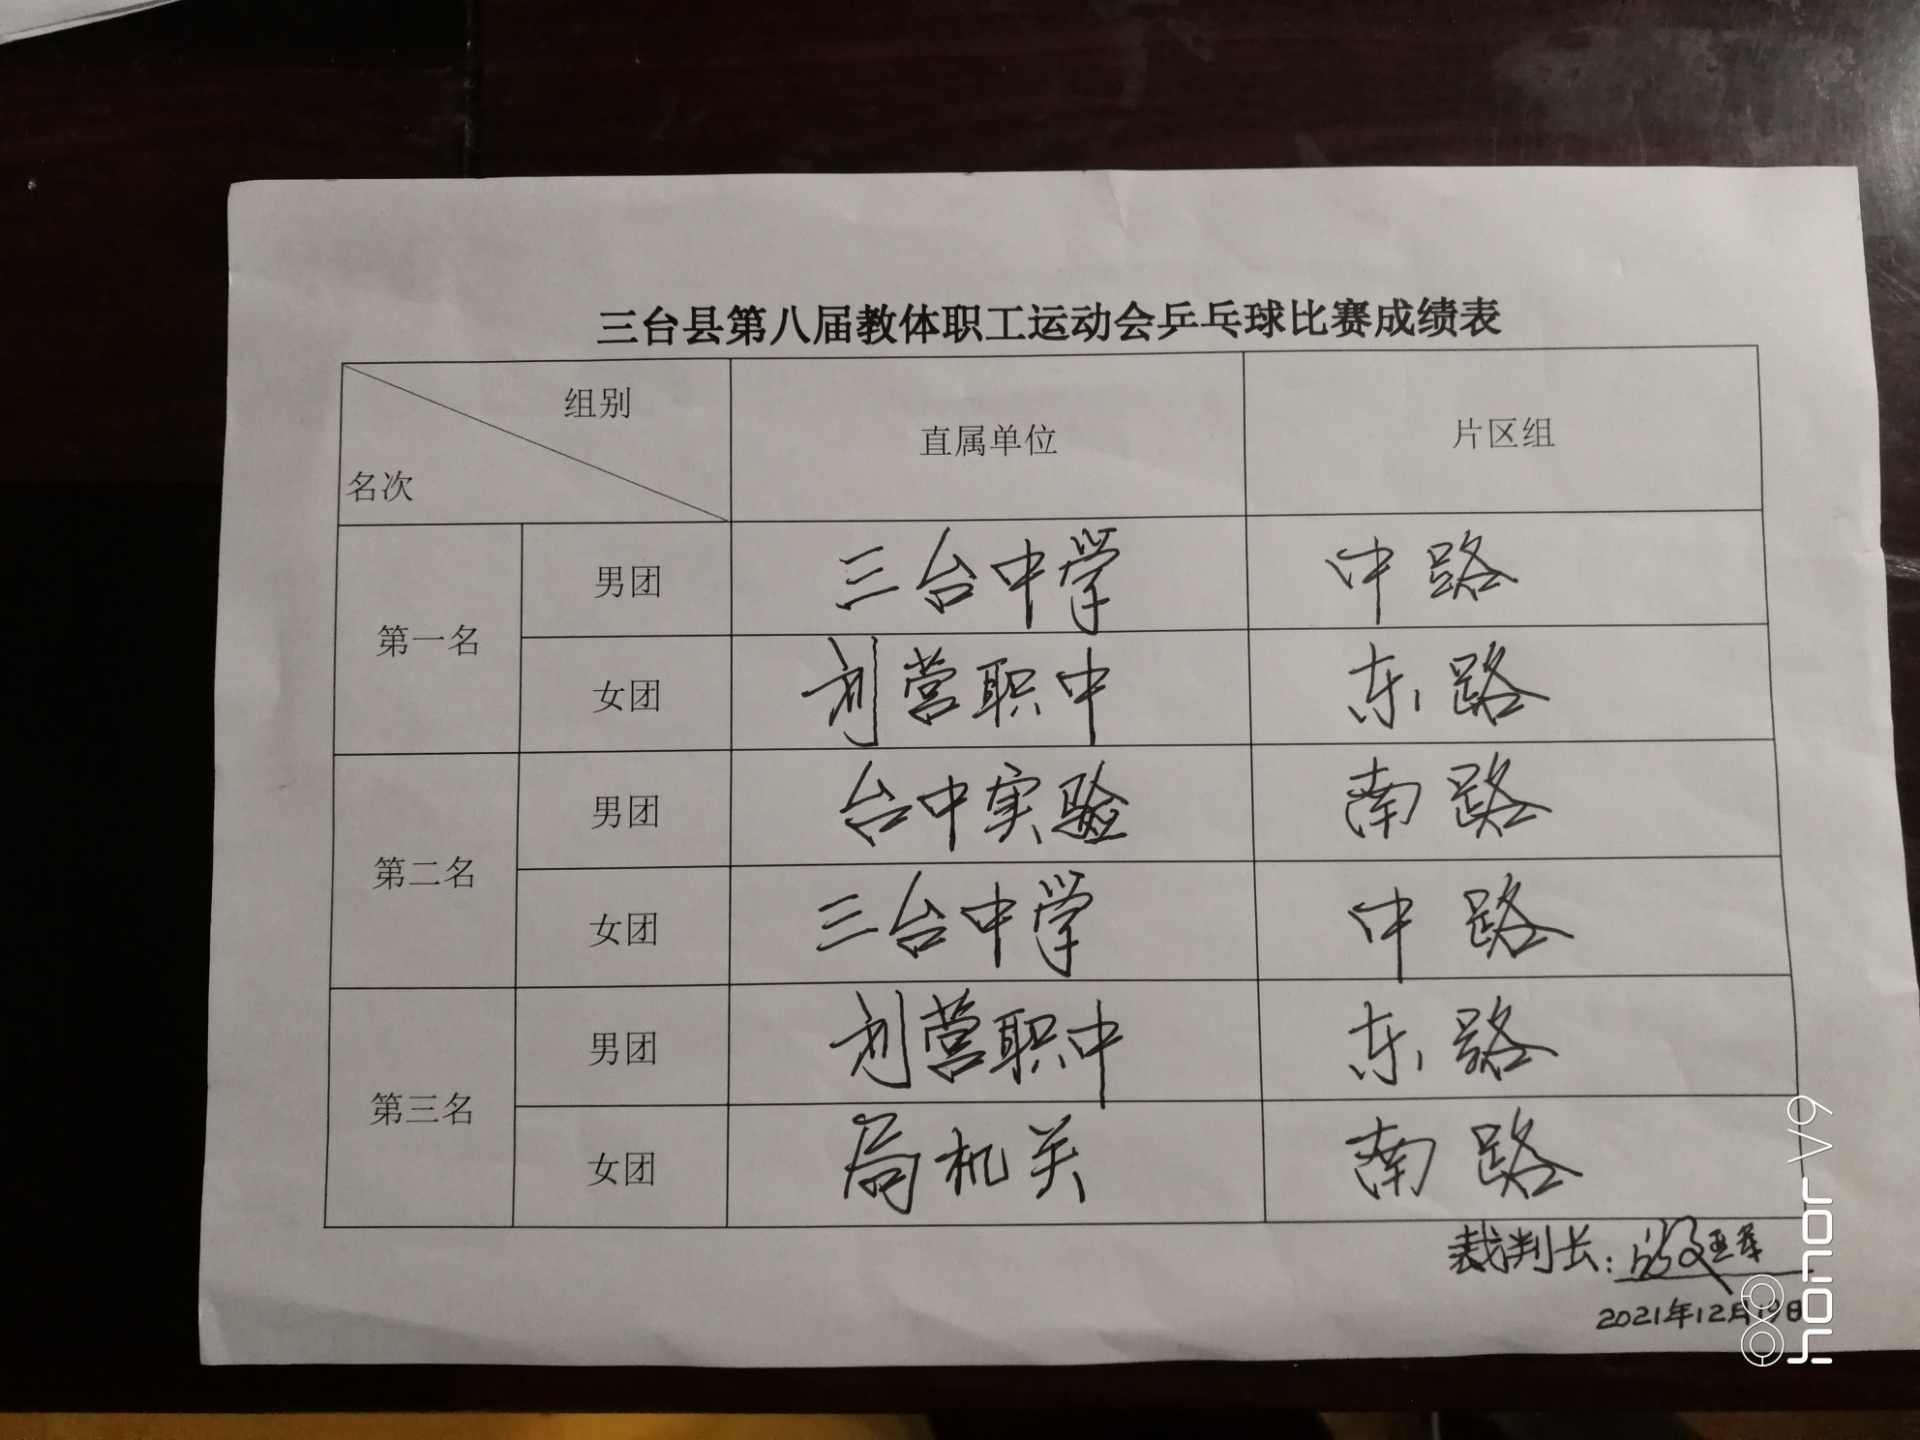 三台县第八届教体职工运动会乒乓球比赛成绩表
组别
名次
直属单位
片区组
第一名
男团
三台中学
中路
女团
刘营职中
东路
第二名
男团
台中实验
南路
女团
三台中学
中路
第三名
男团
刘营职中
东路
女团
局机关
南路
裁判长:
2021年12月19日
honor V9